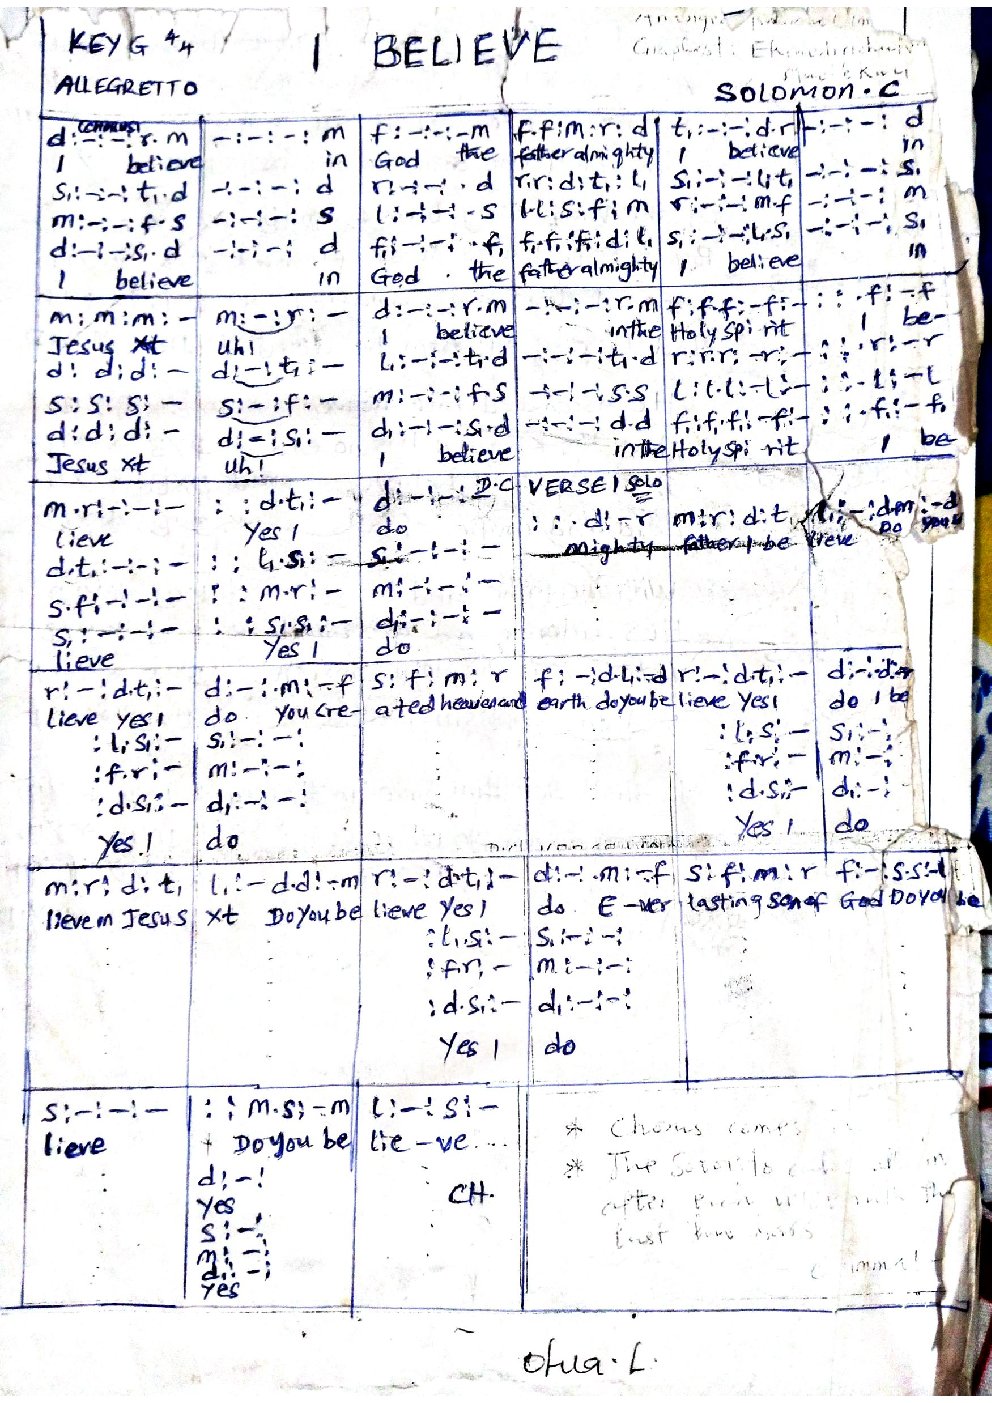 KEY G 4/4
I BELIEVE
ALLEGRETTO
SOLOMON. C
CHORUS
d:-:-:r.m | -:-:-: m | f:-:-:-m | f.f:m:r:d | t,:-:-:d.r | -:-:-: d
I believe in God the father almighty I believe in
s,:-:-:t,.d | -:-:-: d | r:-:-:.d | r.r:d:t,:l, | s,:-:-:l,.t, | -:-:-: s,
m:-:-:f.s | -:-:-: s | l:-:-:-s | l.l:s:f:m | r:-:-:m.f | -:-:-: m
d:-:-:s,.d | -:-:-: d | f,:-:-:.f, | f,.f,:f,:d:l, | s,:-:-:l,.s, | -:-:-: s,
I believe in God . the father almighty I believe in
m:m:m:- | m:-:r:- | d:-:-:r.m | -:-:-:r.m | f:f.f:-f:- | : :.f:-f
Jesus Xt Uh! I believe in the Holy Spi rit I be-
d:d:d:- | d:-:t,:- | l,:-:-:t,.d | -:-:-:t,.d | r:r.r:-r:- | : :.r:-r
s:s:s:- | s:-:f:- | m:-:-:f.s | -:-:-:s.s | l:l.l:-l:- | : :.l:-l
d:d:d:- | d:-:s,:- | d,:-:-:s,.d | -:-:-:d.d | f,:f,.f,:-f,:- | : :.f,:-f,
Jesus xt Uh! I believe in the Holy Spi rit I be
D.C VERSE 1 SOLO
m.r:-:-:- | : :d.t,:- | d:-:-:- | : :.d:-r | m:r:d:t, | l,:-:d.m:-d
lieve Yes I do mighty father I be lieve Do you
d.t,:-:-:- | : :l,.s,:- | s,:-:-:-
s.f:-:-:- | : :m.r:- | m:-:-:-
s,:-:-:- | : :s,.s,:- | d,:-:-:-
lieve Yes I do
r:-:d.t,:- | d:-:.m:-f | s:f:m:r | f:-:d.l,:-d | r:-:d.t,:- | d:-:d.r
lieve Yes I do You Cre- ated heaven and earth do you be lieve Yes I do I be
:l,.s,:- | s,:-:-: | :l,.s,:- | s,:-:
:f.r:- | m:-:-: | :f.r:- | m:-:
:d.s,:- | d,:-:-: | :d.s,:- | d,:-:
Yes I do Yes I do
m:r:d:t, | l,:-d.d:-m | r:-:d.t,:- | d:-:.m:-f | s:f:m:r | f:-:s.s:-l
lieve in Jesus xt Do you be lieve Yes I do E-ver lasting Son of God Do you be
:l,.s,:- | s,:-:-:
:f.r:- | m:-:-:
:d.s,:- | d,:-:-:
Yes I do
s:-:-:- | : :m.s:-m | l:-:s:-
lieve Do you be lie-ve
d:-:
yes
s:-:
m:-:
d,:-:
Yes
CH.
* Chorus comes
* The
after
last two
Otua. L.